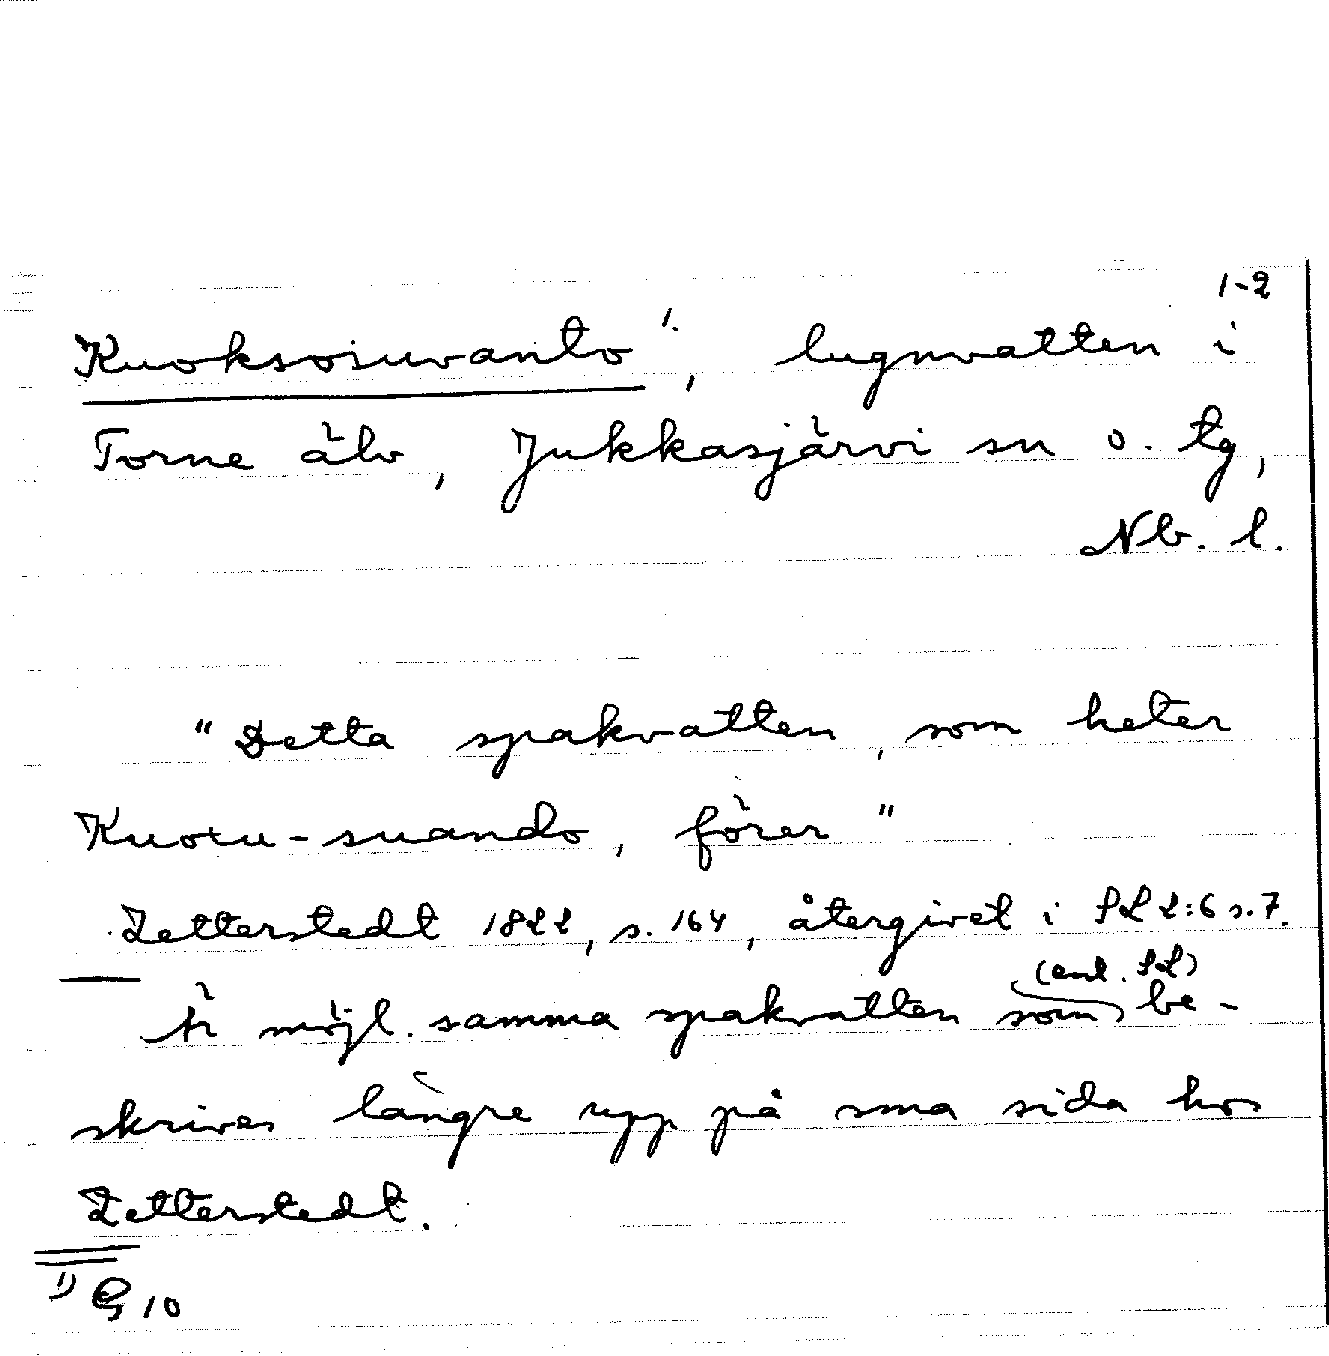 1-2
Kuoksosuvanto 1., lugnvatten i
Torne älv, Jukkasjärvi sn o. tg,
Nb. l.
"Detta spakvatten, som heter
Kuoxu-suando, förer"
Zetterstedt 1822, s. 164, återgivet i SL 2:6 s. 7.
(enl. SL)
Är möjl. samma spakvatten som be-
skrives längre upp på sma sida hos
Zetterstedt.
1) G 10